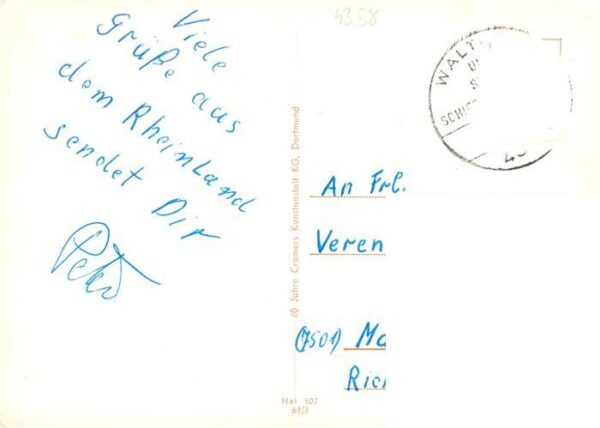 4358
Viele
Grüße aus
dem Rheinland
sendet Dir
Peter
60 Jahre Cramers Kunstanstalt KG, Dortmund
Hal 507
68/3
An Frl.
Veren
(7501) Ma
Ric
WALT
SCHI